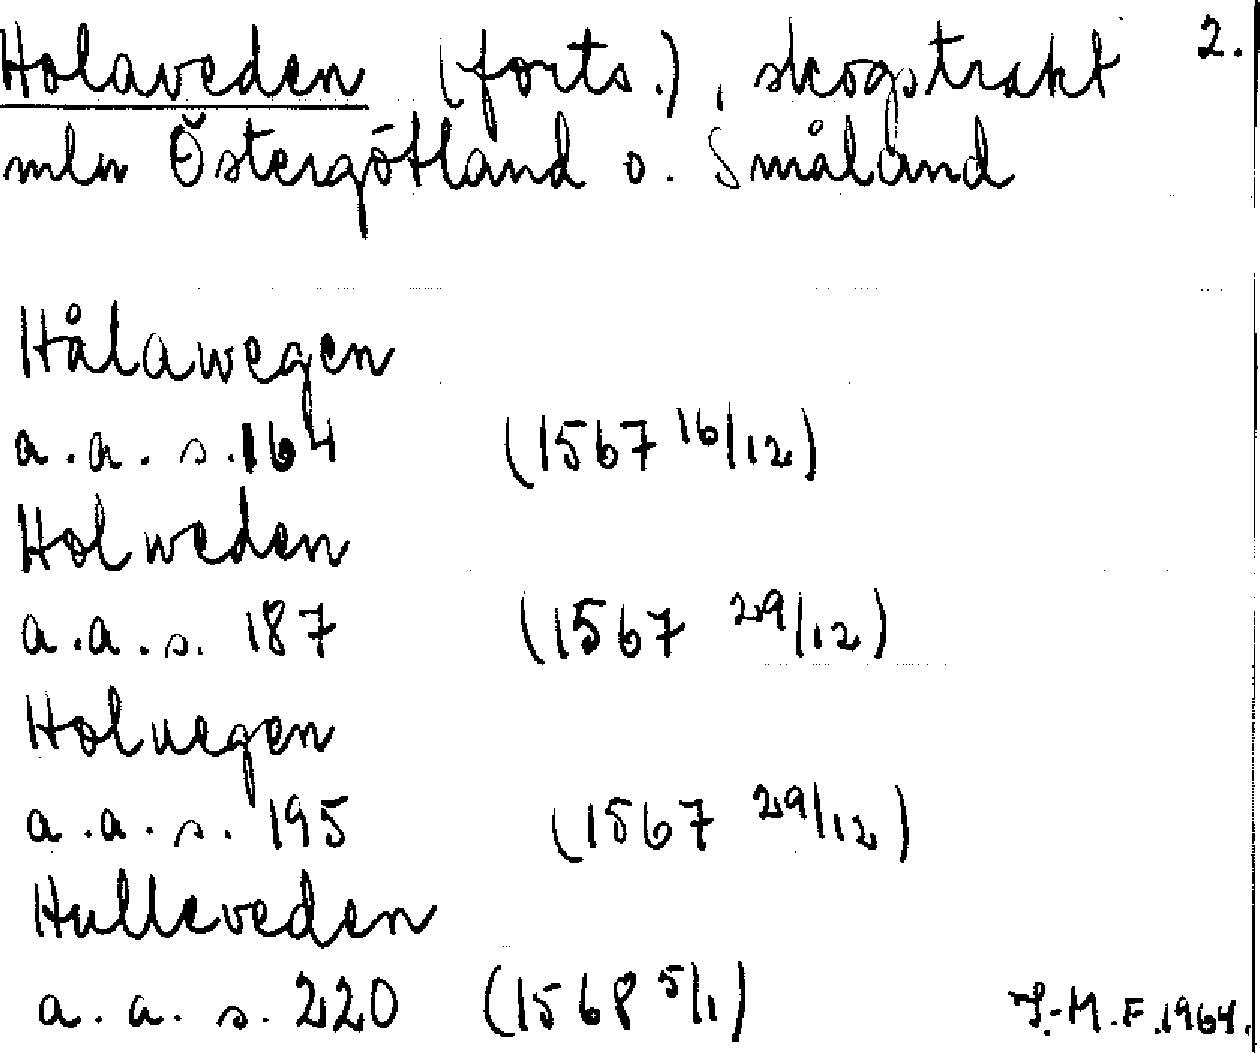 Holaveden (forts.), skogstrakt 2.
mln Östergötland o. Småland
Hålawegen
a.a. s. 164 (1567 16/12)
Holweden
a.a. s. 187 (1567 29/12)
Holuegen
a.a. s. 195 (1567 29/12)
Hulleveden
a.a. s. 220 (1568 5/1)
I.-M.F. 1964.